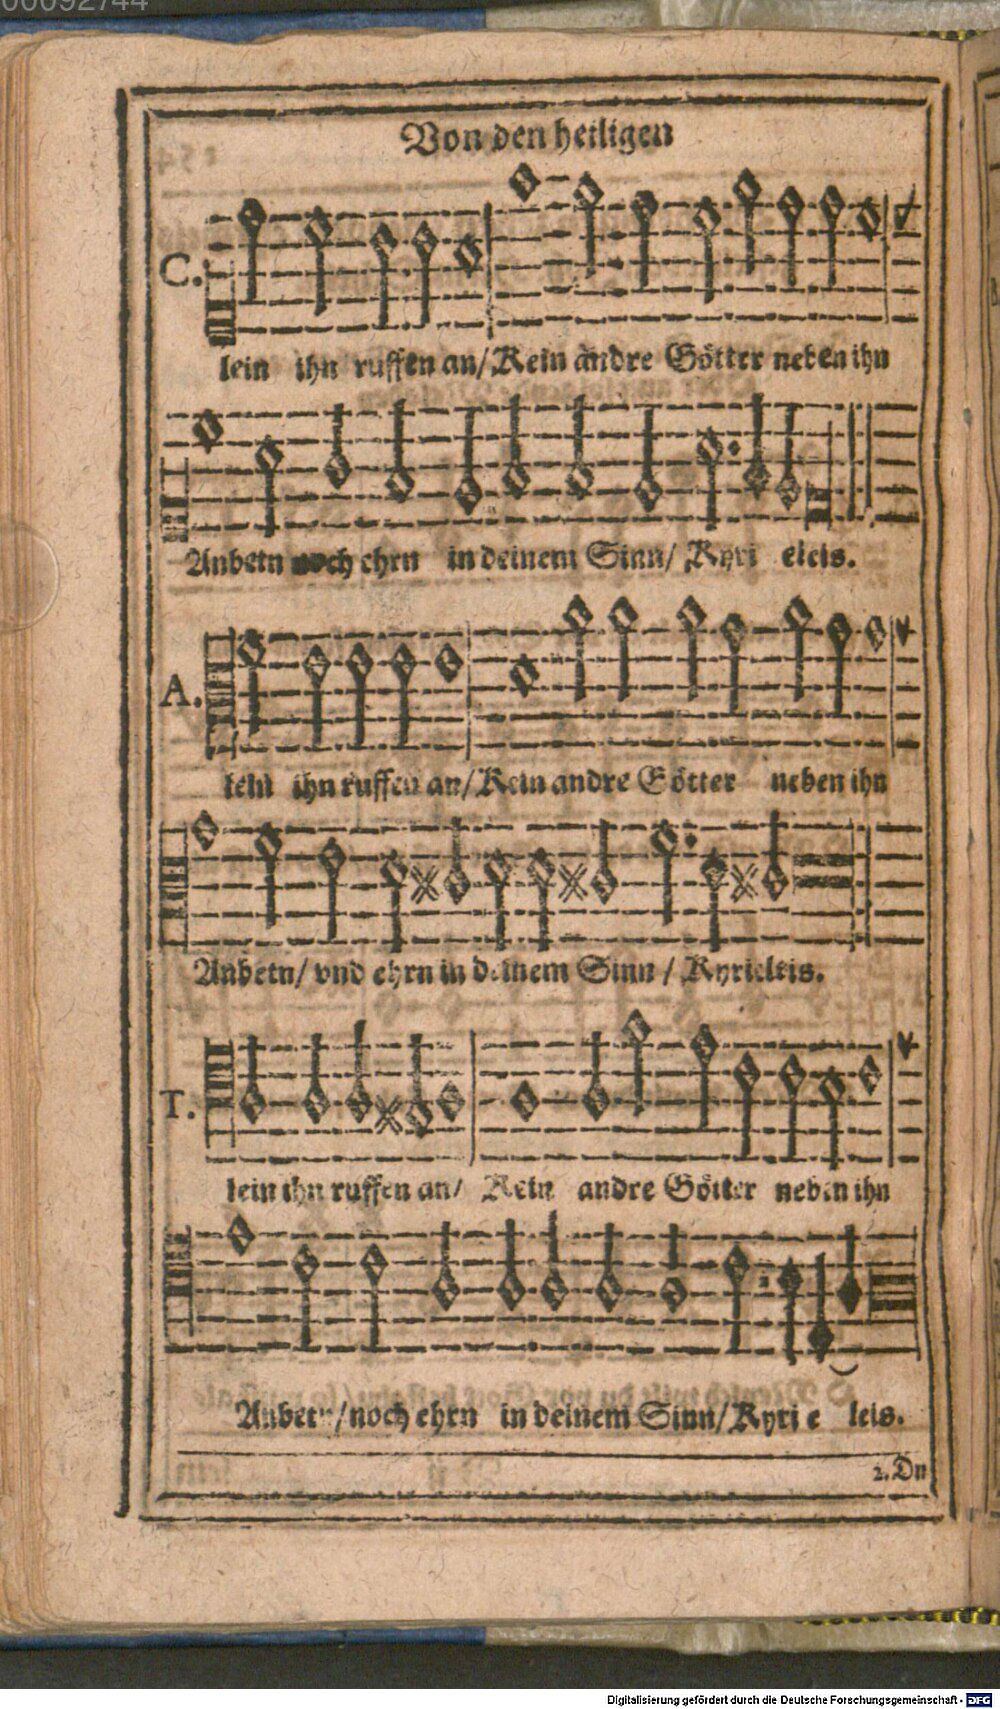 00092744
Von den heiligen
C.
lein ihn ruffen an/ Kein andre Götter neben ihn
Anbetn noch ehrn in deinem Sinn/ Kyri eleis.
A.
lein ihn ruffen an/ Kein andre Götter neben ihn
Anbetn/ vnd ehrn in deinem Sinn/ Kyrieleis.
T.
lein ihn ruffen an/ Kein andre Götter neben ihn
Anbetn/ noch ehrn in deinem Sinn/ Kyri e leis.
2. Du
Digitalisierung gefördert durch die Deutsche Forschungsgemeinschaft - DFG